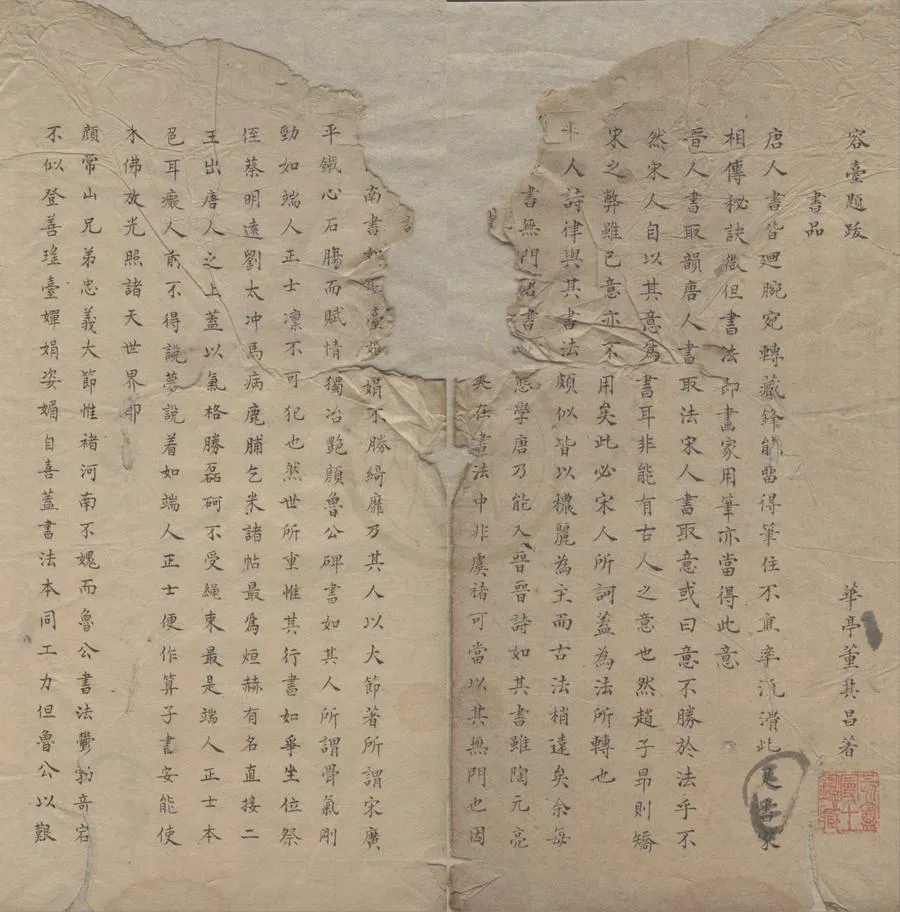 容臺題跋
華亭董其昌著
書品
唐人書皆廻腕宛轉藏鋒能留得筆住不直率流滑此是書家
相傳秘訣微但書法即畫家用筆亦當得此意
晉人書取韻唐人書取法宋人書取意或曰意不勝於法乎不
然宋人自以其意爲書耳非能有古人之意也然趙子昂則矯
宋之弊雖己意亦不用矣此必宋人所訶蓋為法所轉也
人詩律與其書法頗似皆以穠麗為主而古法稍遠矣余每
書無門 書 態學唐乃能入晉晉詩如其書雖陶元亮
在書法中非虞褚可當以其無門也因
南書 臺 娟不勝綺靡乃其人以大節著所謂宋廣
平鐵心石腸而賦情獨冶艷顏魯公碑書如其人所謂骨氣剛
勁如端人正士凛不可犯也然世所重惟其行書如爭坐位祭
侄蔡明遠劉太冲馬病鹿脯乞米諸帖最爲烜赫有名直接二
王出唐人之上蓋以氣格勝磊砢不受繩束最是端人正士本
色耳癡人前不得說夢說着如端人正士便作算子書安能使
木佛放光照諸天世界耶
顏常山兄弟忠義大節惟褚河南不媿而魯公書法鬱勃奇宕
不似登善瑤臺嬋娟姿媚自喜蓋書法本同工力但魯公以艱